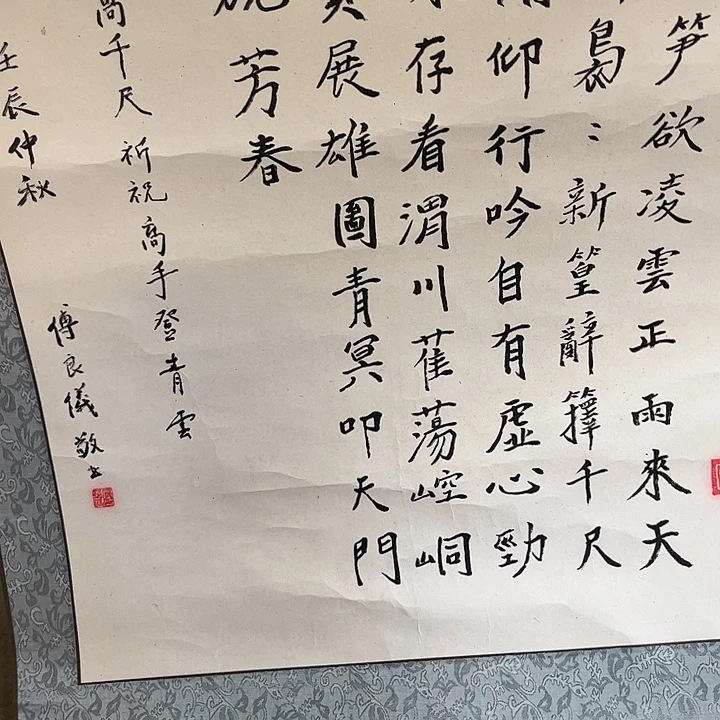 笋欲凌雲正雨來天
裊〻新篁辭籜千尺
仰行吟自有虛心勁
存看渭川萑蕩崆峒
展雄圖青冥叩天門
芳春
高千尺祈祝高手登青雲
壬辰仲秋
傅良儀敬书